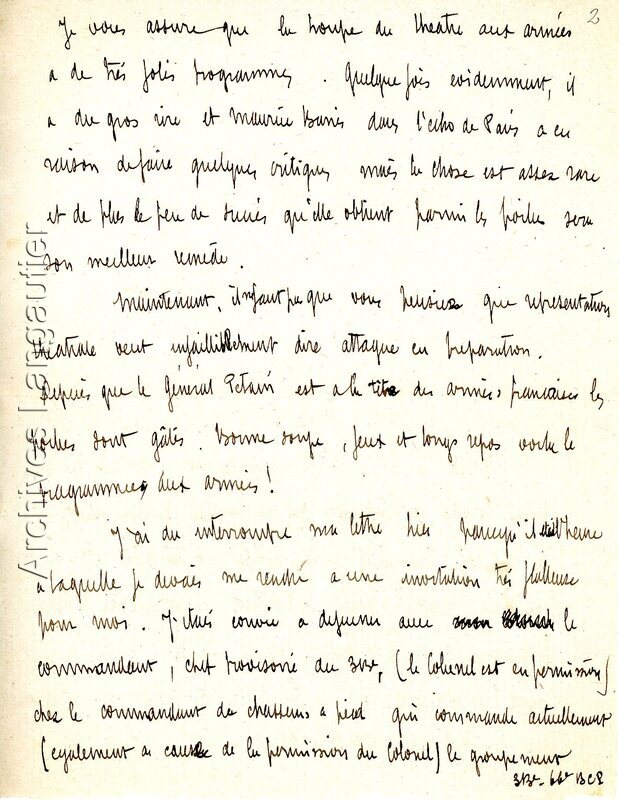 2
Je vous assure que la troupe du theatre aux armées
a de très jolis programmes. Quelque fois evidemment, il
a du gros rire et Maurice Barrès dans l'echo de Paris a eu
raison de faire quelques critiques mais la chose est assez rare
et de plus le peu de succès qu'elle obtient parmi les poilus sera
son meilleur remède.
Maintenant, il ne faut pas que vous pensiez que représentation
théatrale veut infailliblement dire attaque en preparation.
Depuis que le Général Petain est a la tête des armées francaises les
poilus sont gâtés. Bonne soupe, jeux et longs repos voila le
programme aux armées!
J'ai du interrompre ma lettre hier parcequ'il était l'heure
a laquelle je devais me rendre a une invitation très flatteuse
pour moi. J'etais convié a dejeuner avec le
commandant, chef provisoire du 313e, (le Colonel est en permission)
chez le commandant de chasseurs a pied qui commande actuellement
(egalement a cause de la permission du Colonel) le groupement
313e - 66e BCP
Archives Langautier